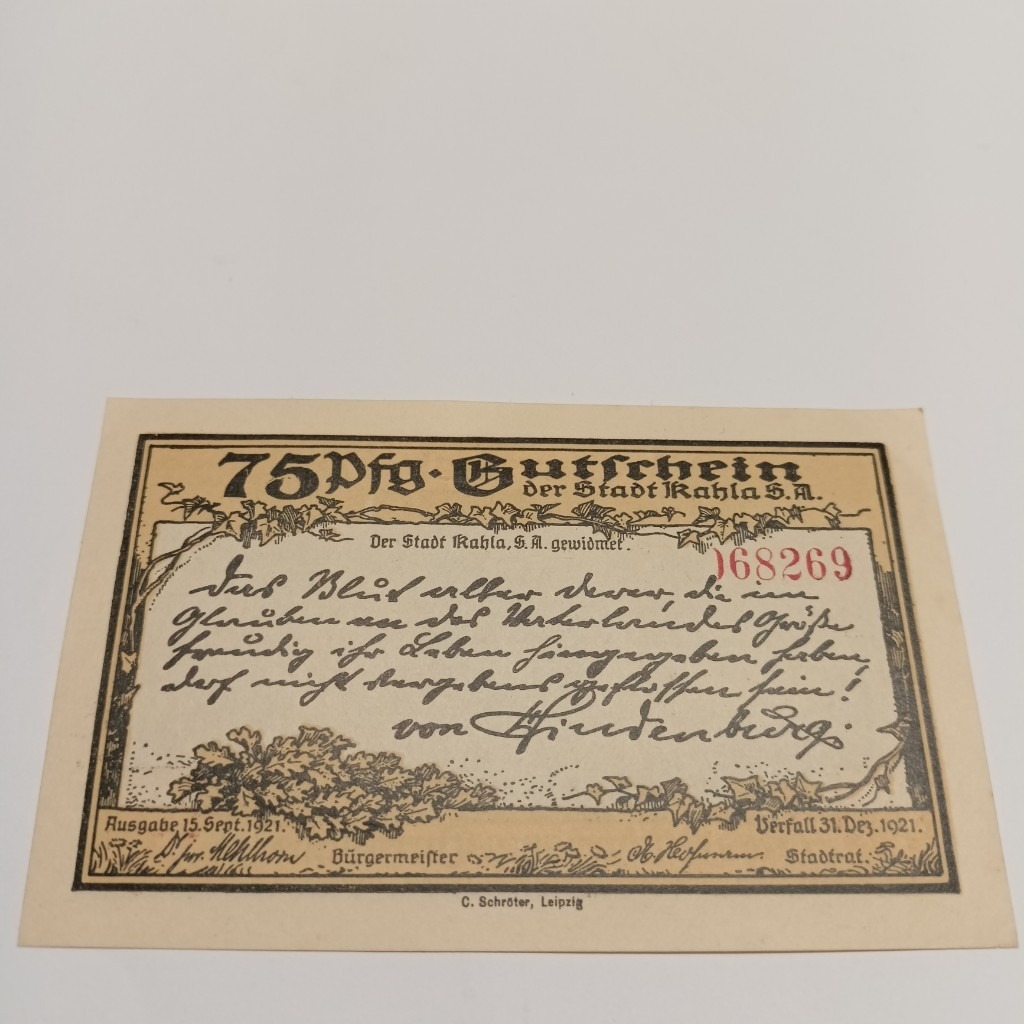 75 Pfg. Gutschein
der Stadt Kahla S.A.
Der Stadt Kahla, S.A. gewidmet.
068269
Das Blut aller derer, die im
Glauben an des Vaterlandes Größe
freudig ihr Leben hingegeben haben,
darf nicht vergebens geflossen sein!
von Hindenburg.
Ausgabe 15. Sept. 1921.
Verfall 31. Dez. 1921.
Dr. jur. Mehlhorn Bürgermeister
Stadtrat.
C. Schröter, Leipzig